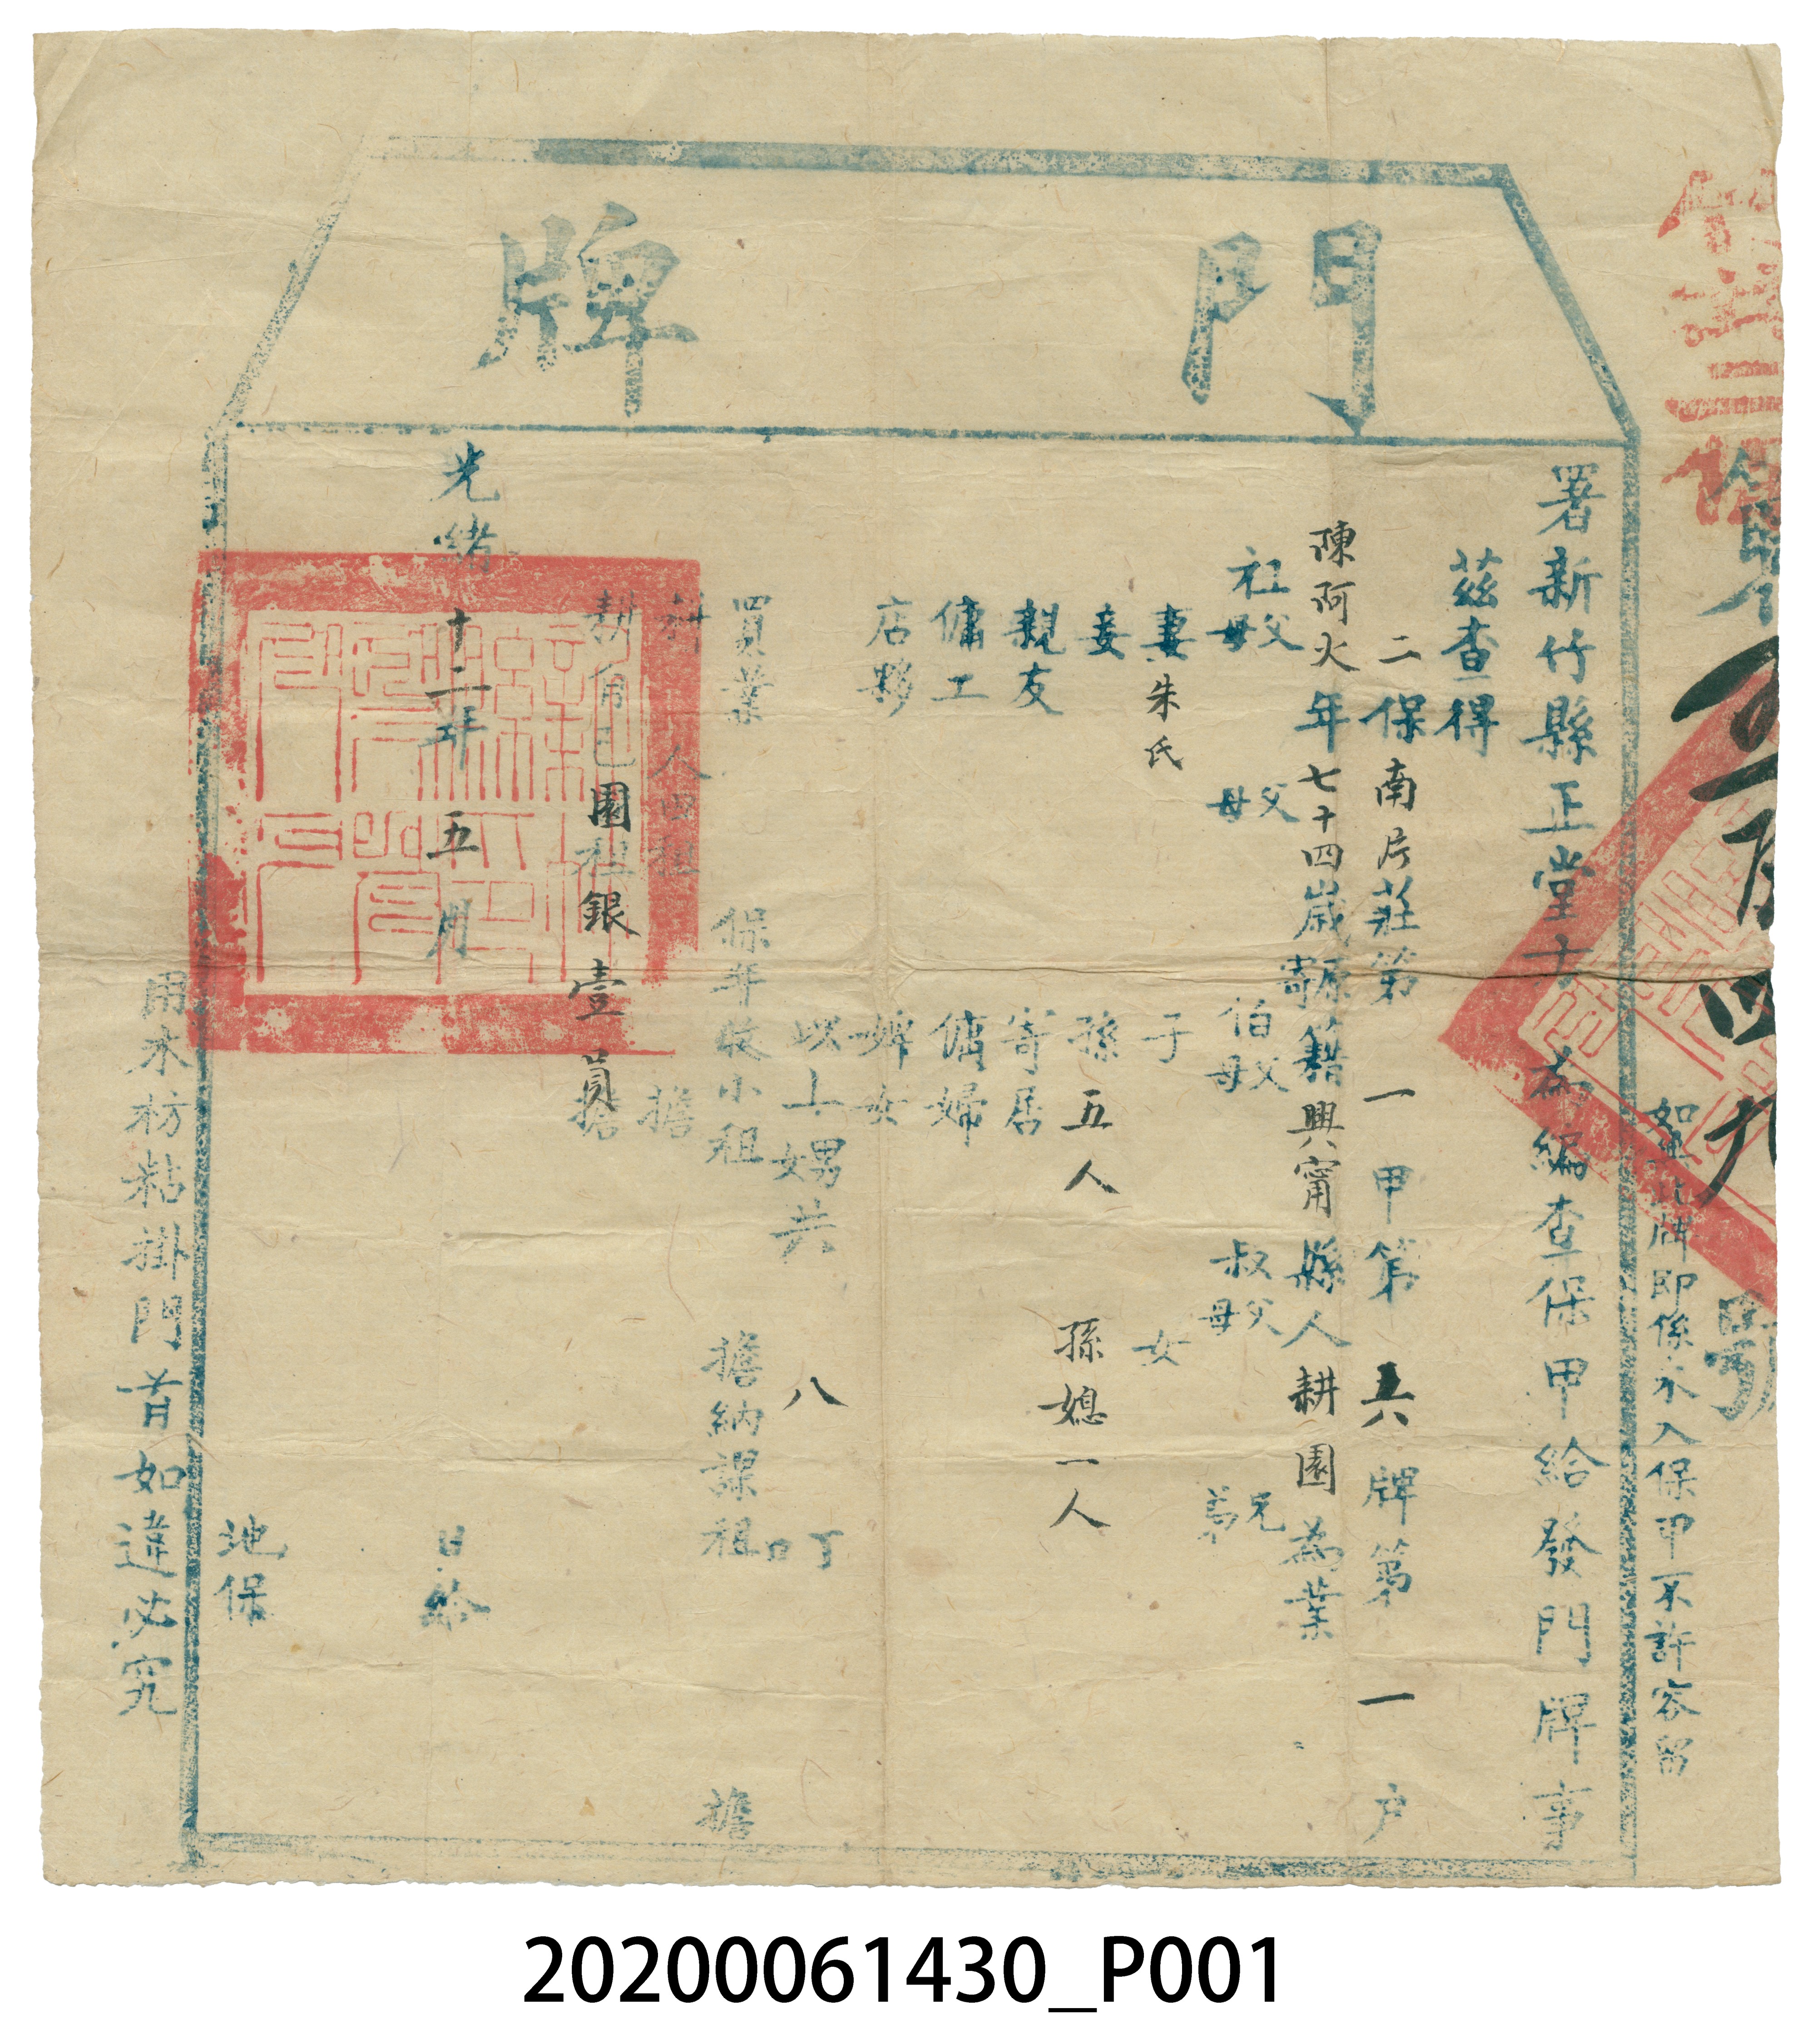 門牌
如無此牌即係未入保甲不許容留
署新竹縣正堂方 為編查保甲給發門牌事
茲查得
二保南片莊第一甲第六牌第一戶
陳阿火年七十四歲原寄籍興甯縣人耕園為業
祖父母 父母 伯父母 叔父母 兄弟
妻朱氏 子 女
妾 孫五人 孫媳一人
親友 寄居
傭工 傭婦
店夥 婢女
以上男女共八丁口
買業 保年收小租 擔納課租 擔
人田租 擔
耕自己園租銀壹員 擔
光緒十二年五月 日給
地保
用木枋粘掛門首如違必究
20200061430_P001